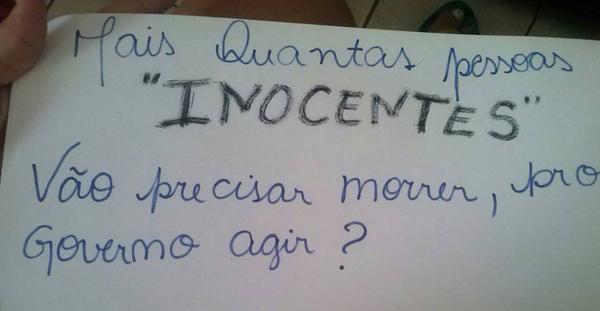 Mais Quantas pessoas
"INOCENTES"
Vão precisar morrer, pro
Governo agir?